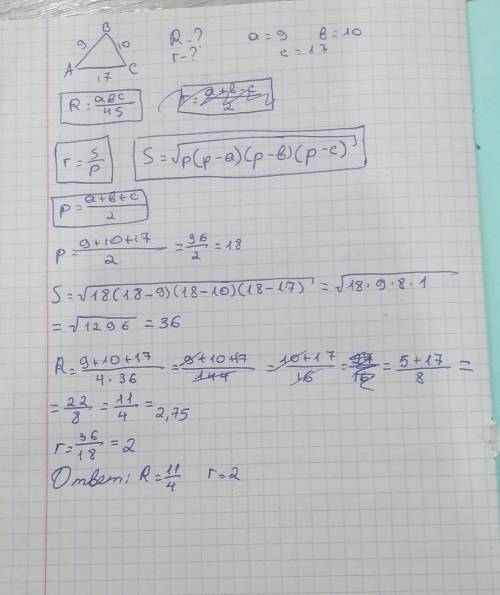 B
9 10
A 17 C
R-? a=9 b=10
r-? c=17
R=abc/4S r=a+b-c/2
r=S/p S=√p(p-a)(p-b)(p-c)
p=a+b+c/2
p=9+10+17/2=36/2=18
S=√18(18-9)(18-10)(18-17)=√18·9·8·1
=√1296=36
R=9+10+17/4·36=9+10+17/144=10+17/16=5+17/8=
=22/8=11/4=2,75
r=36/18=2
Ответ: R=11/4 r=2